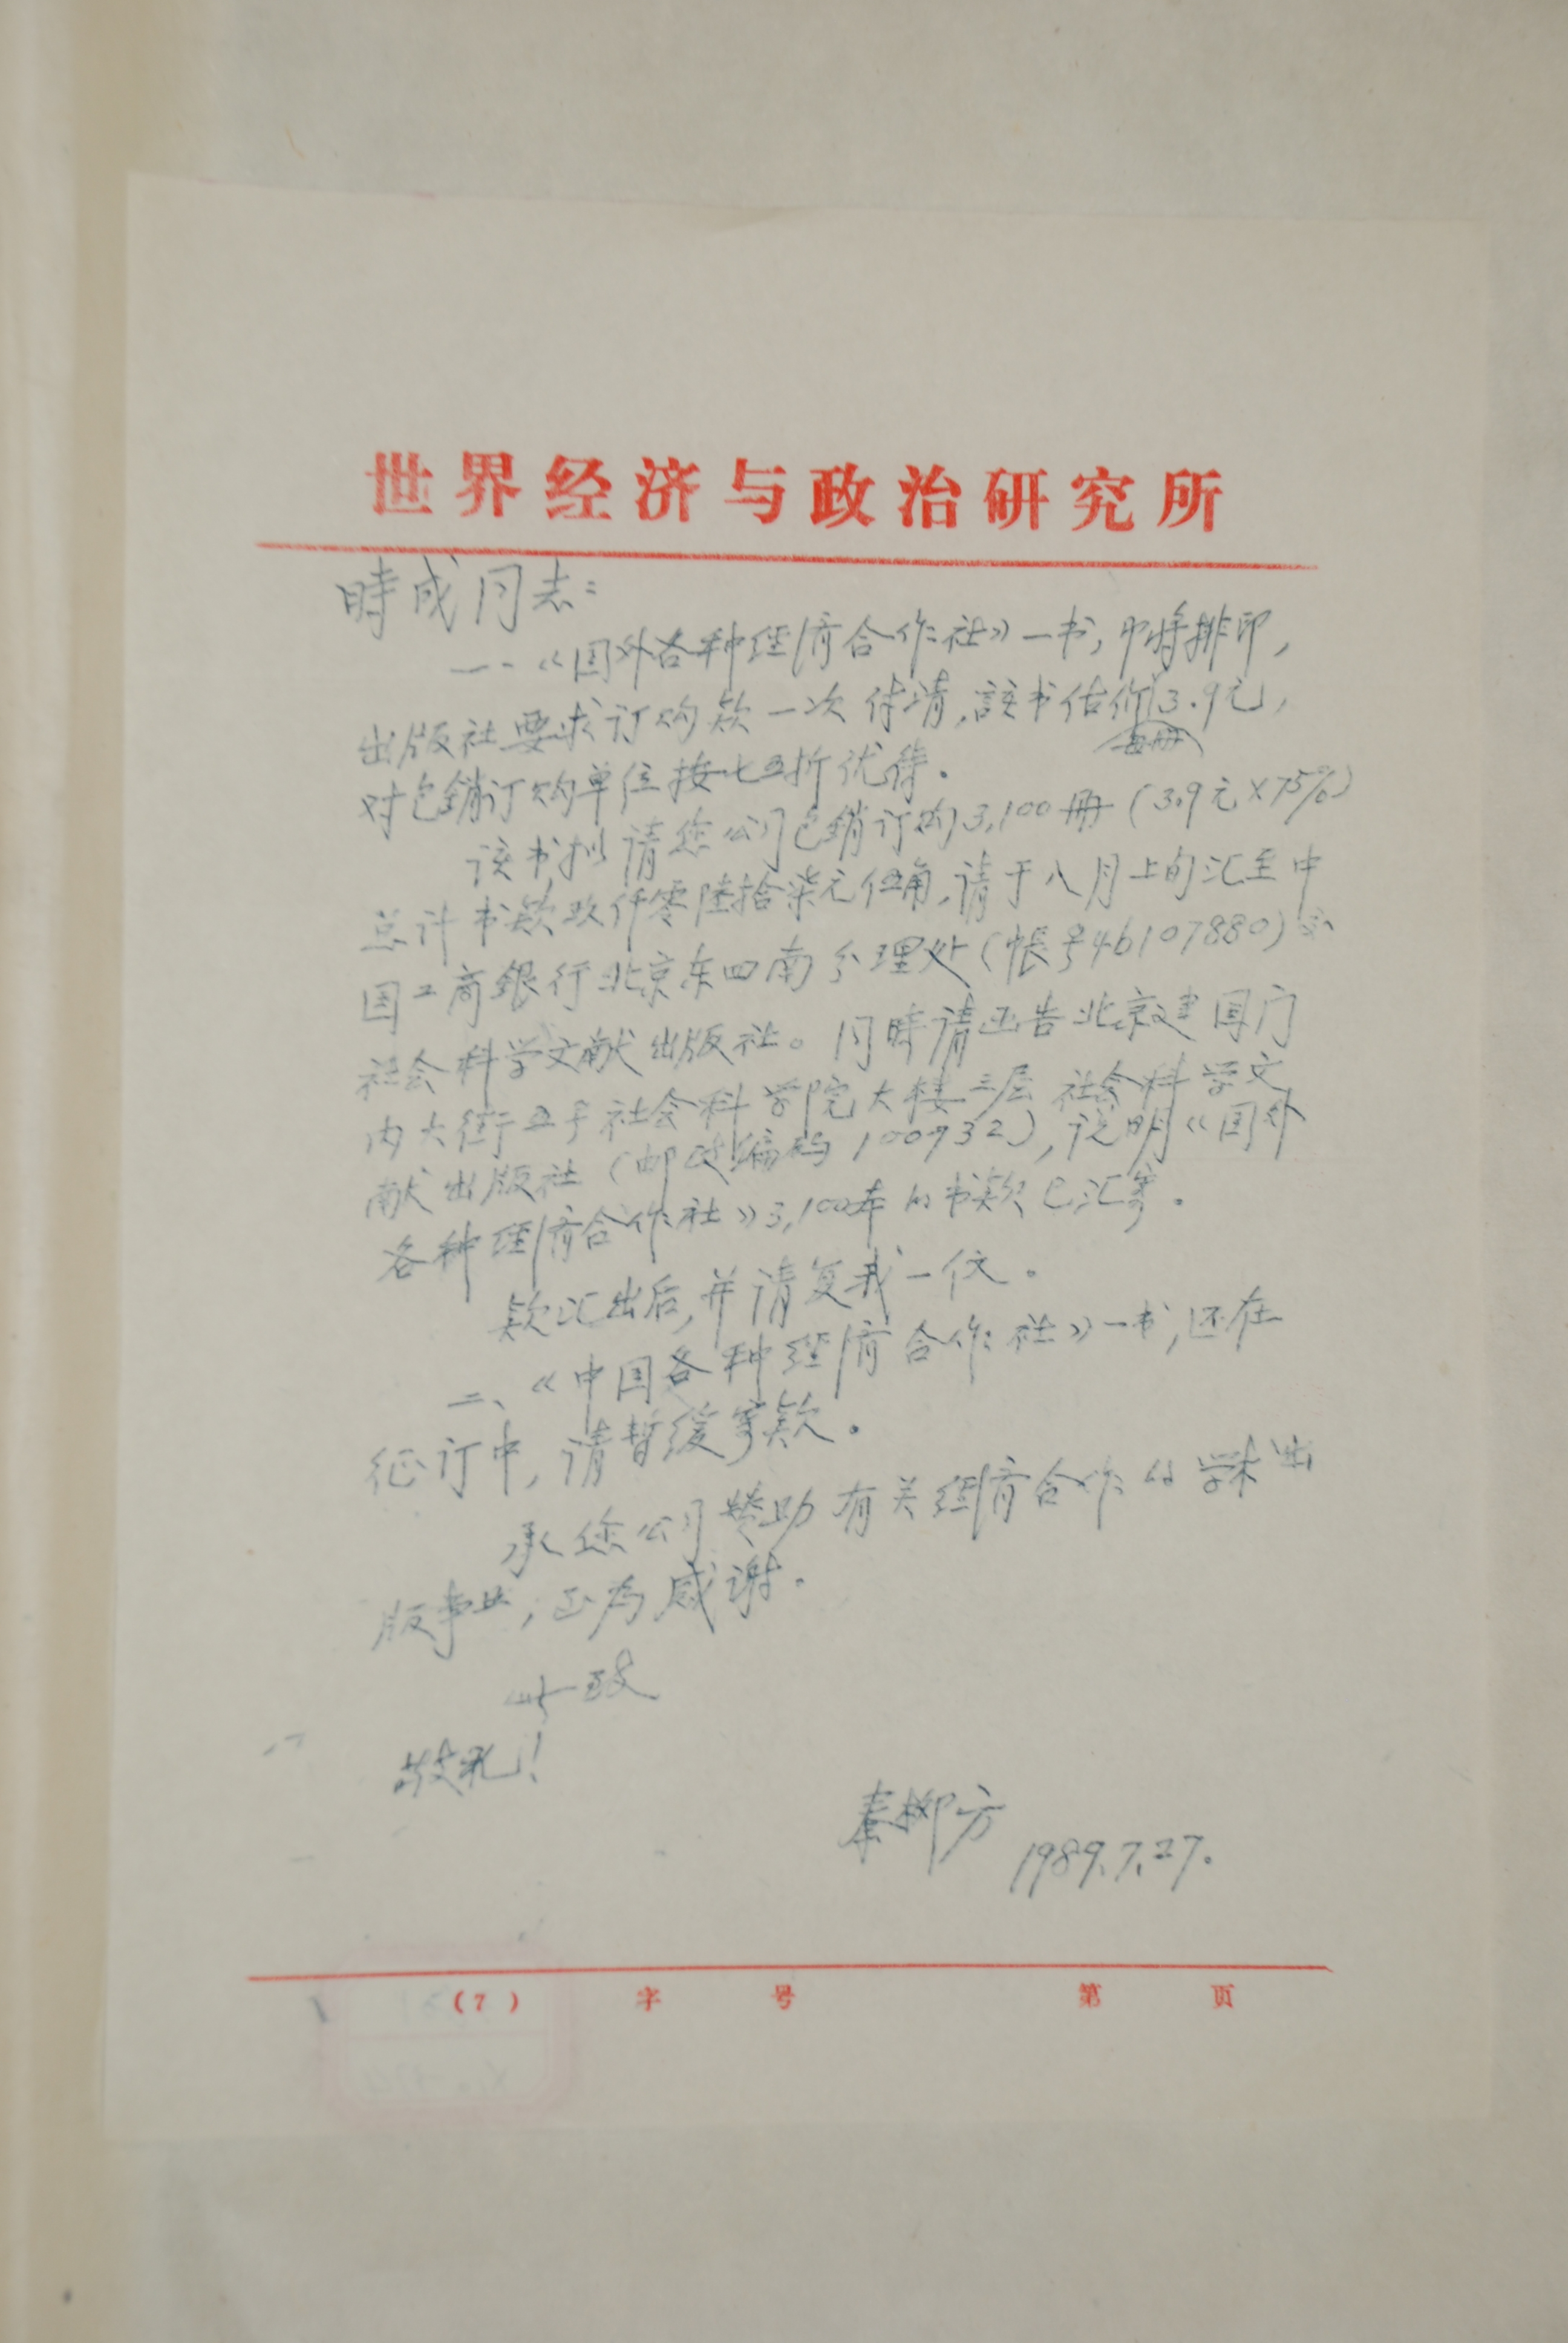 世界经济与政治研究所
時成同志:
一、《国外各种经济合作社》一书,即将排印,
出版社要求订购款一次付清,該书估价每册3.9元,
对包銷订购单位按七五折优待。
该书拟请您公司包銷订购3,100册(3.9元×75%)
总计书款玖仟零陸拾柒元伍角,请于八月上旬汇至中
国工商銀行北京东四南分理处(帳号46107880)
社会科学文献出版社。同時请函告北京建国门
内大街五号社会科学院大楼三层社会科学文
献出版社(邮政编码100732),说明《国外
各种经济合作社》3,100本的书款已汇寄。
款汇出后,并请复我一信。
二、《中国各种经济合作社》一书,还在
征订中,请暂缓寄款。
承您公司赞助有关经济合作的学术出
版事业,至为感谢。
此致
敬礼!
秦柳方
1989.7.27.
(7) 字 号 第 页